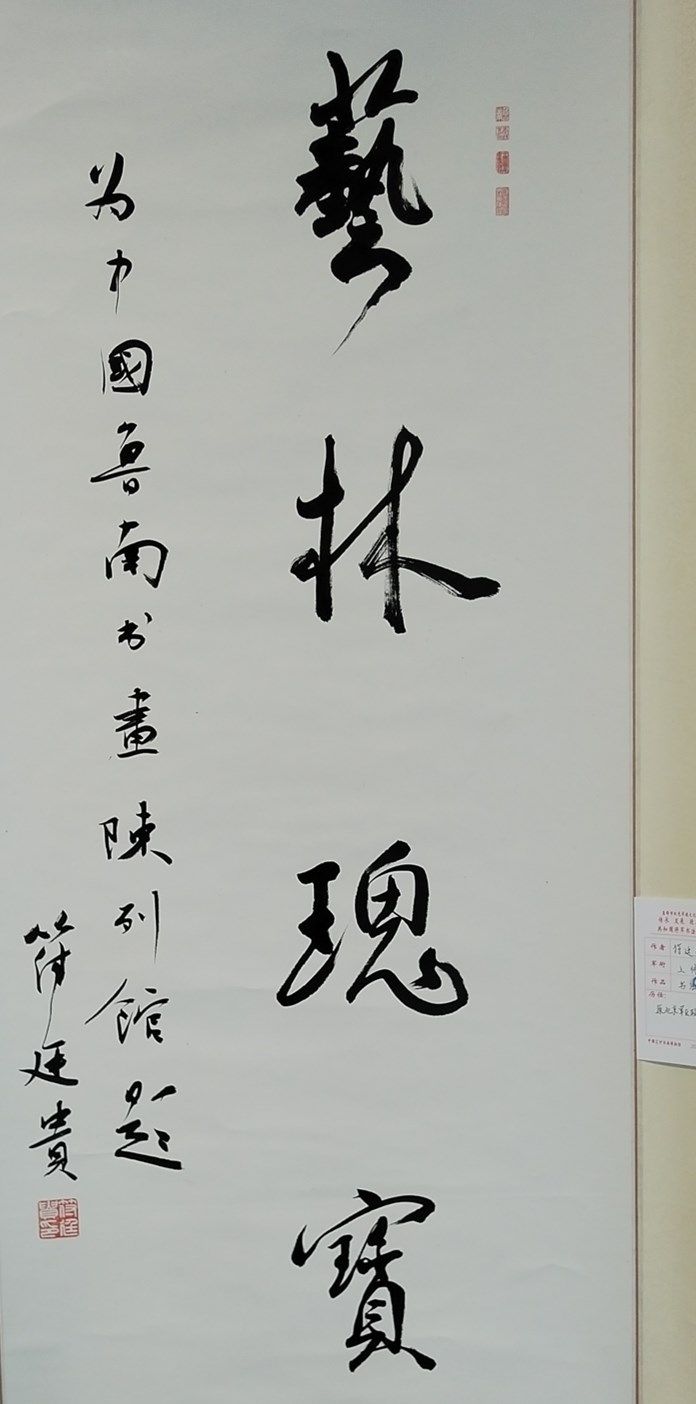 藝林瑰寶
为中國鲁南书畫陳列館题
符廷貴
作者
军衔
作品